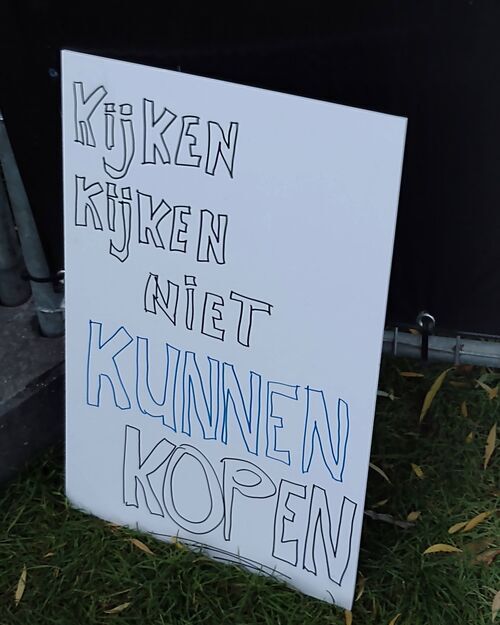 Kijken
Kijken
Niet
KUNNEN
KOPEN